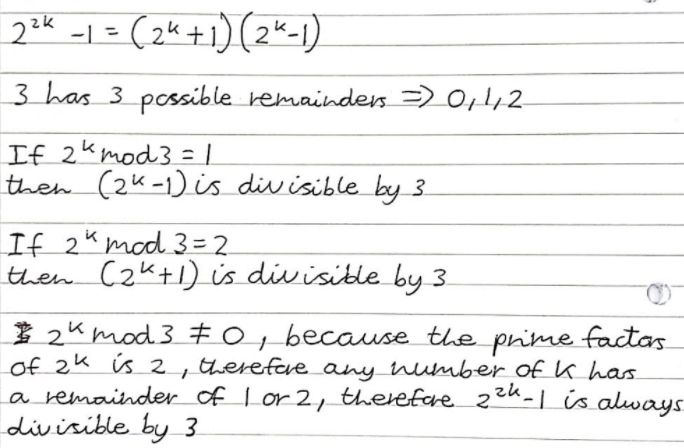 2²ᵏ -1 = (2ᵏ+1)(2ᵏ-1)
3 has 3 possible remainders ⇒ 0,1,2
If 2ᵏ mod 3 = 1
then (2ᵏ-1) is divisible by 3
If 2ᵏ mod 3 = 2
then (2ᵏ+1) is divisible by 3
2ᵏ mod 3 ≠ 0, because the prime factors
of 2ᵏ is 2, therefore any number of k has
a remainder of 1 or 2, therefore 2²ᵏ-1 is always
divisible by 3